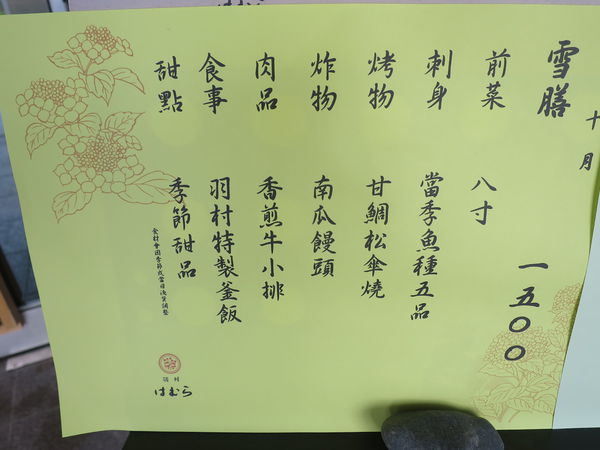 十月
雪膳 一五〇〇
前菜 八寸
刺身 當季魚種五品
烤物 甘鯛松傘燒
炸物 南瓜饅頭
肉品 香煎牛小排
食事 羽村特製釜飯
甜點 季節甜品
食材會因季節或當日進貨調整
羽村
はむら